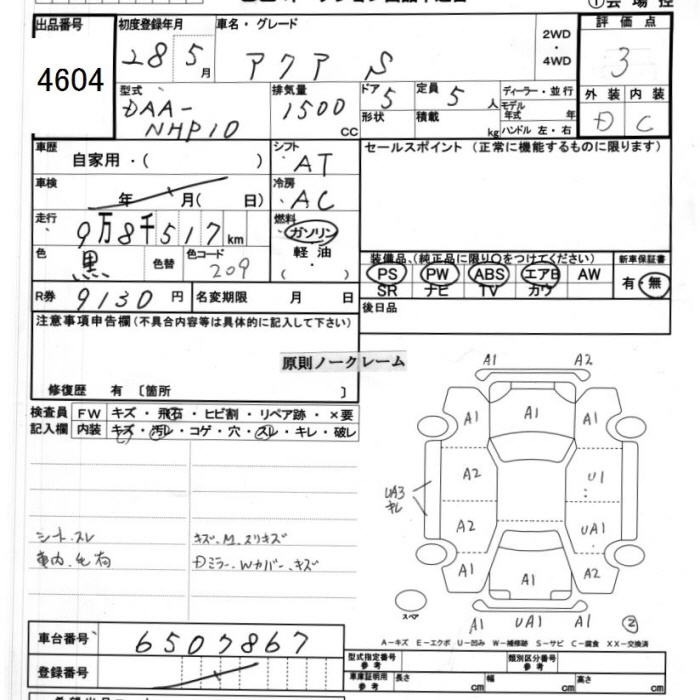 ① 会 場 控
出品番号 初度登録年月 車名・グレード 評 価 点
4604 28 5 月 アクア S 2WD ・ 4WD 3
型式 排気量 ドア 定員 ディーラー・並行 外 装 内 装
DAA-NHP10 1500 CC 5 5 人 モデル年式 年 D C
形状 積載 kg ハンドル 左・右
車歴 シフト セールスポイント (正常に機能するものに限ります)
自家用・( ) AT
車検 冷房
年 月( 日) AC
走行 燃料
9万8千517 km ガソリン
色 色替 色コード 軽 油 装備品、(純正品に限り○をつけてください) 新車保証書
黒 209 ( ・ ) PS PW ABS エアB AW 有・無
SR ナビ TV カワ
R券 9130 円 名変期限 月 日 後日品
注意事項申告欄(不具合内容等は具体的に記入して下さい)
原則ノークレーム
修復歴 有 〔箇所 〕
検査員 FW キズ・飛石・ヒビ割・リペア跡・×要
記入欄 内装 キズ・汚レ・コゲ・穴・スレ・キレ・破レ
A1 A2
A1 A1 A1
A2 U1
UA3 キレ
A2 UA1
A1 A1 A2
A1 UA1 A1 ②
スペア
シート.スレ キズ.M.スリキズ
車内.毛有 Dミラー.Wカバー.キズ
A-キズ E-エクボ U-凹み W-補修跡 S-サビ C-腐食 XX-交換済
車台番号 6507867
型式指定番号 参 考 類別区分番号 参 考
登録番号 車庫証明用 参 考 長さ cm 幅 cm 高さ cm